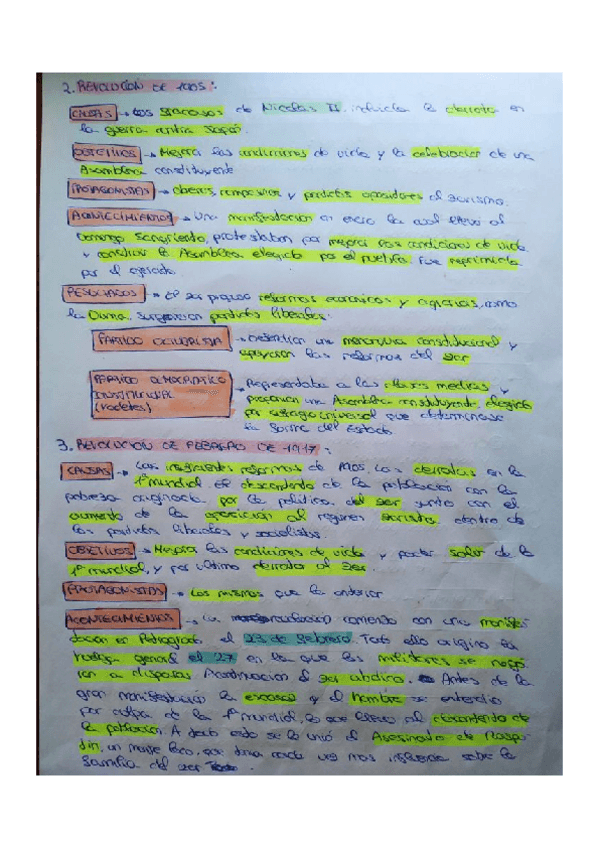 2. REVOLUCIÓN DE 1905:
CAUSAS → Los fracasos de Nicolas II incluida la derrota en
la guerra contra Japón.
OBJETIVOS → Mejora las condiciones de vida y la celebración de una
Asamblea constituyente
PROTAGONISTAS → obreros, campesinos y partidos opositores al zarismo.
ACONTECIMIENTOS → Una manifestación en enero la cual llevó al
Domingo Sangriento, protestaban por mejorar las condiciones de vida
y construir la Asamblea elegida por el pueblo. Fue reprimida
por el ejército.
RESULTADOS → El zar propuso reformas económicas y agrarias, como
la Duma. Surgieron partidos liberales:
PARTIDO OCTUBRISTA → Defendían una monarquía constitucional y
apoyaron las reformas del zar
PARTIDO DEMOCRÁTICO
CONSTITUCIONAL
(Kadetes)
→ Representaba a las clases medias y
proponían una Asamblea constituyente, elegida
por sufragio universal que determinase
la forma del Estado
3. REVOLUCIÓN DE FEBRERO DE 1917:
CAUSAS → Las insuficientes reformas de 1905. Las derrotas en la
1ª mundial El descontento de la población con la
pobreza originada por la política del zar junto con el
aumento de la oposición al régimen zarista dentro de
los partidos liberales y socialistas.
OBJETIVOS → Mejora las condiciones de vida y poder salir de la
1ª mundial, y por ultimo derrotar al zar
PROTAGONISTAS → Los mismos que la anterior
ACONTECIMIENTOS → La revolución comenzó con una manifes-
tación en Petrogrado el 23 de febrero. Todo ello origino la
huelga general el 27 en la que los militares se nega-
ron a disparar. El zar abdico. Antes de la
gran manifestación la escasez y el hambre se extendio
por culpa de la 1ª mundial, lo que llevo al descontento de
la población. A todo esto se le unió el Asesinato de Raspu-
tin, un monje loco, que tenia cada vez mas influencia sobre la
familia del zar.